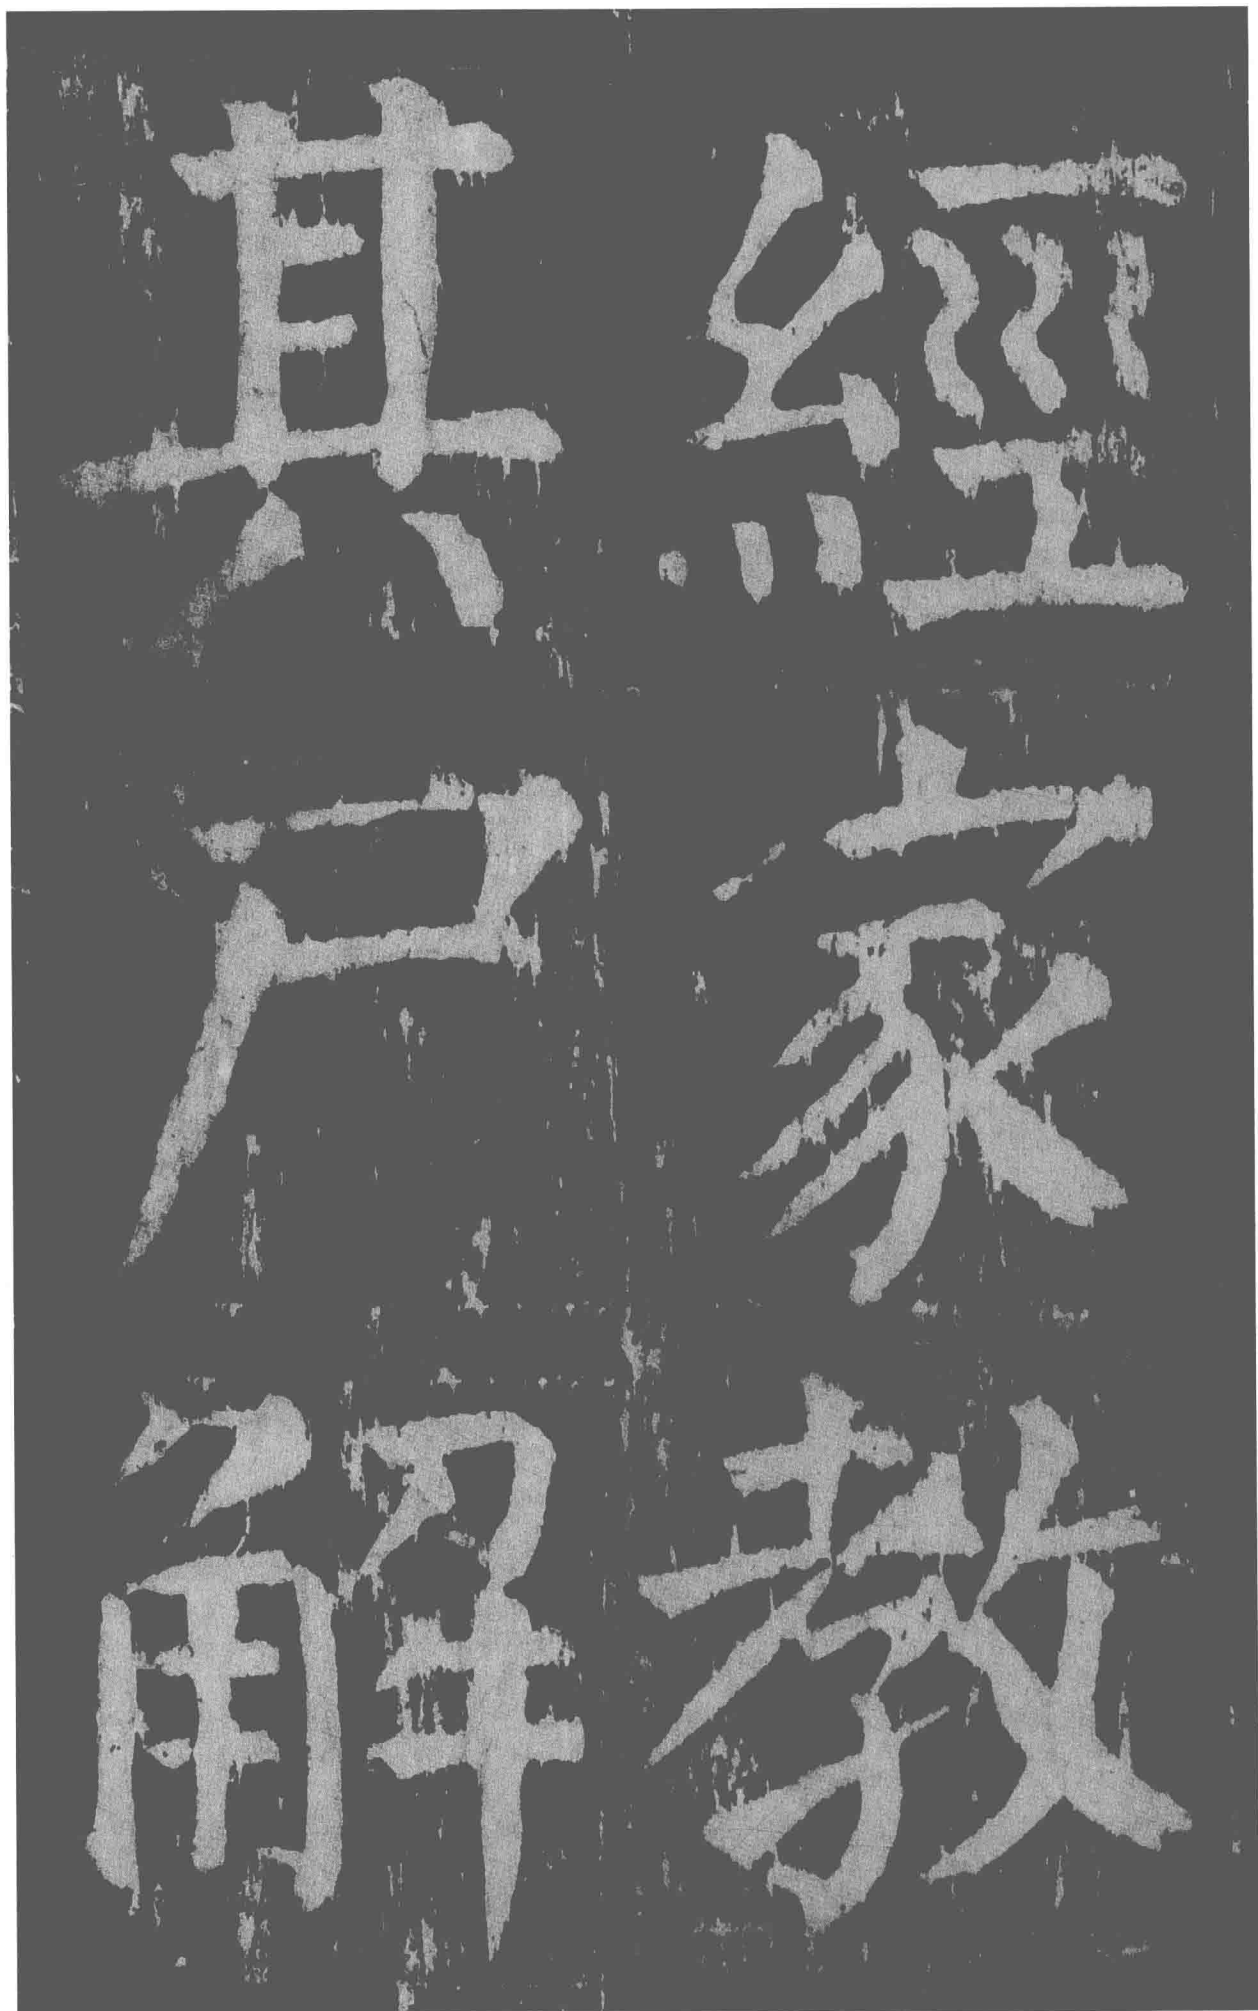 經家教
其尸解